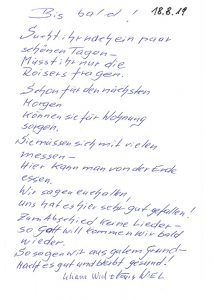 Bis bald! 18.8.19
Sucht ihr noch ein paar
schönen Tagen –
Müsst ihr nur die
Roisers fragen.
Schon für den nächsten
Morgen
können sie für Wohnung
sorgen.
Sie müssen sich mit vielen
messen –
Hier kann man von der Erde
essen.
Wir sagen euch allen,
uns hat es hier sehr gut gefallen!
Zum Abschied keine Lieder –
so Gott will kommen wir bald
wieder.
So sagen wir aus gutem Grund –
Macht es gut und bleibt gesund!